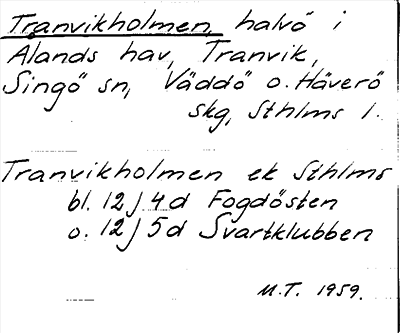 Tranvikholmen, halvö i
Ålands hav, Tranvik,
Singö sn, Väddö o. Häverö
skg, Sthlms l.
Tranvikholmen ek Sthlms
bl. 12 J 4d Fogdösten
o. 12 J 5d Svartklubben
M.T. 1959.